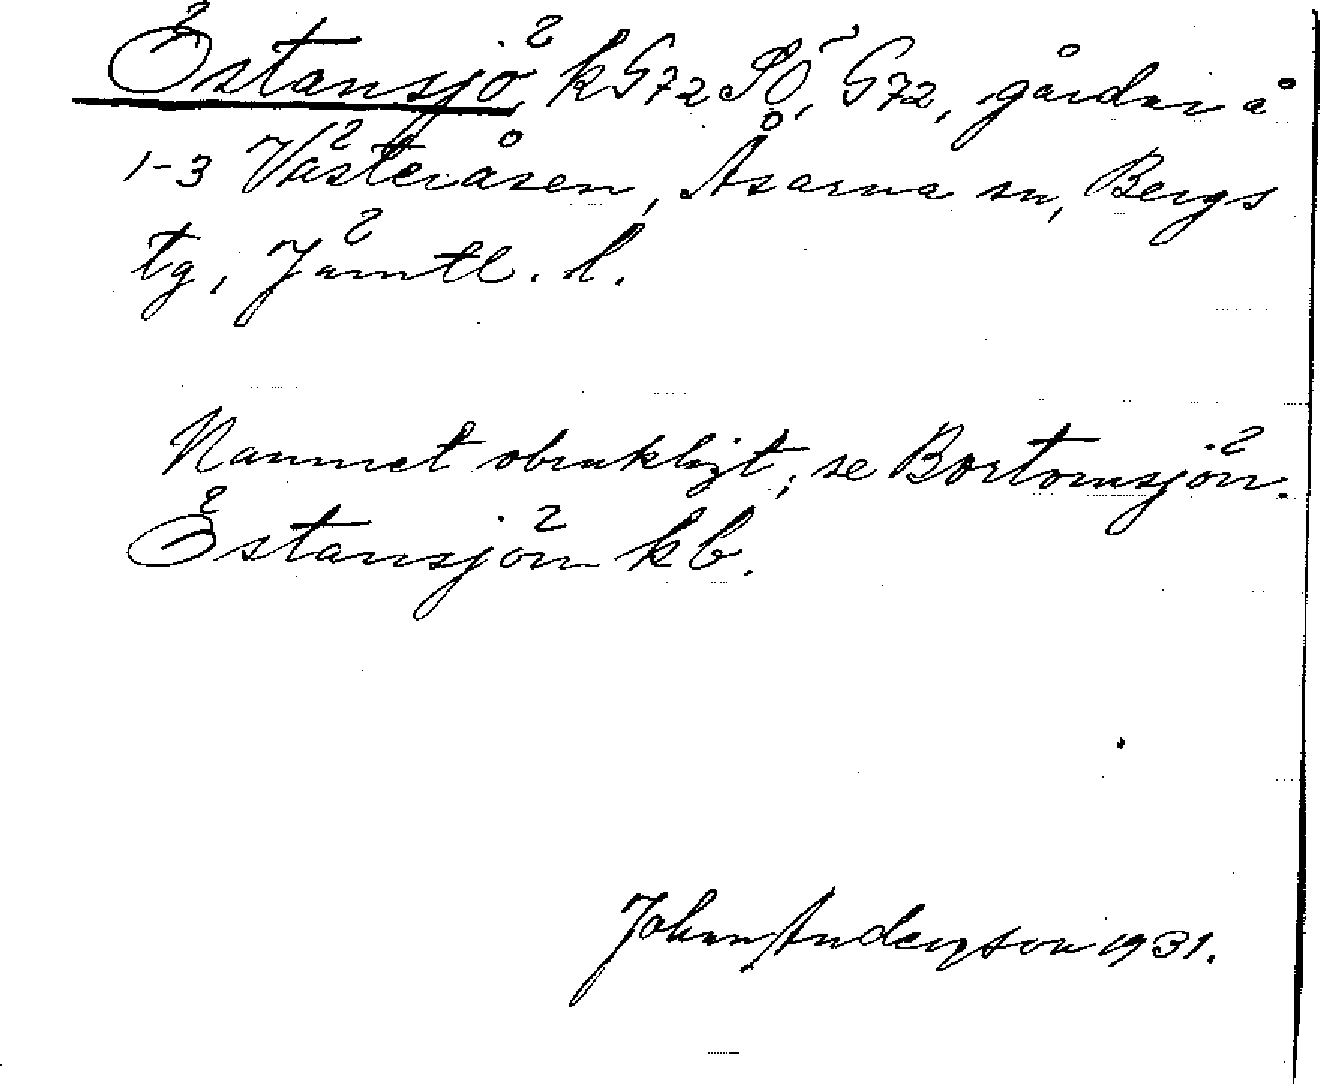 Östansjö, k G72 SÖ, G72, gårdar å
1-3 Västeråsen, Åsarna sn, Bergs
tg, Jämtl. l.
Namnet obrukligt; se Bortomsjön.
Östansjön kb.
Johan Anderzson 1931.